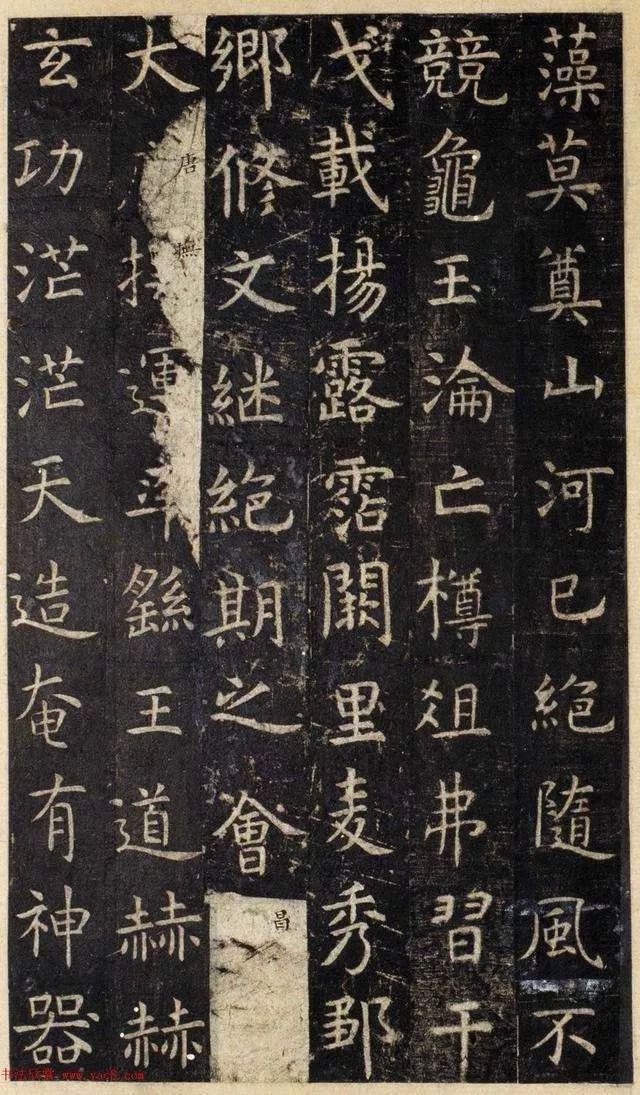 藻莫奠山河已絶隨風不
競龜玉淪亡樽俎弗習干
戈載揚露霑闕里麦秀鄒
鄉修文継絶期之會昌
唐撫
大運率繇王道赫赫
玄功茫茫天造奄有神器
书法欣赏 www.yac8.com